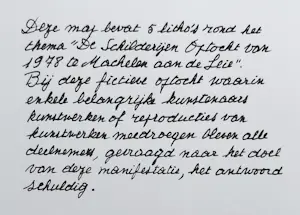 Deze map bevat 5 litho's rond het
thema "De Schilderijen Optocht van
1978 te Machelen aan de Leie".
Bij deze fictieve optocht waarin
enkele belangrijke kunstenaars
kunstwerken of reproducties van
kunstwerken meedroegen bleven alle
deelnemers, gevraagd naar het doel
van deze manifestatie, het antwoord
schuldig.